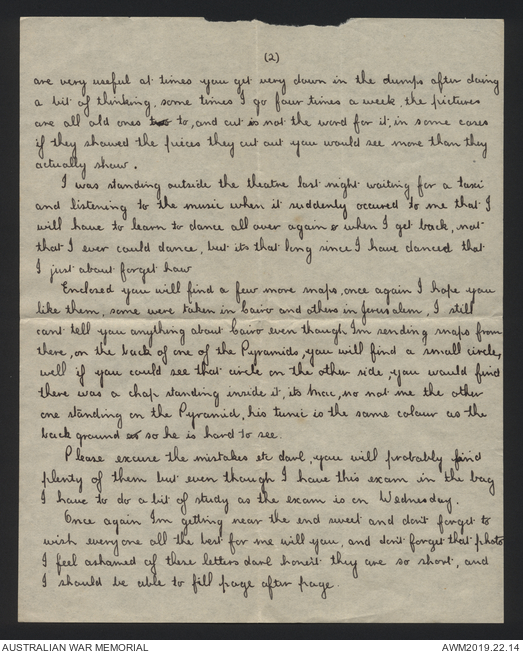 (2)
are very useful at times you get very down in the dumps after doing
a bit of thinking, some times I go four times a week, the pictures
are all old ones to, and cut is not the word for it, in some cases
if they showed the pieces they cut out you would see more than they
actually show.
I was standing outside the theatre last night waiting for a taxi
and listening to the music when it suddenly occured to me that I
will have to learn to dance all over again when I get back, not
that I ever could dance, but its that long since I have danced that
I just about forget how
Enclosed you will find a few more snaps, once again I hope you
like them, some were taken in Cairo and others in Jerusalem, I still
cant tell you anything about Cairo even though Im sending snaps from
there, on the back of one of the Pyramids, you will find a small circle,
well if you could see that circle on the other side, you would find
there was a chap standing inside it, its Mac, no not me the other
one standing on the Pyramid, his tunic is the same colour as the
back ground so he is hard to see.
Please excuse the mistakes etc darl, you will probably find
plenty of them but even though I have this exam in the bag
I have to do a bit of study as the exam is on Wednesday.
Once again Im getting near the end sweet and dont forget to
wish everyone all the best for me will you, and dont forget that photo
I feel ashamed of these letters darl they are so short, and
I should be able to fill page after page.
AUSTRALIAN WAR MEMORIAL
AWM2019.22.14